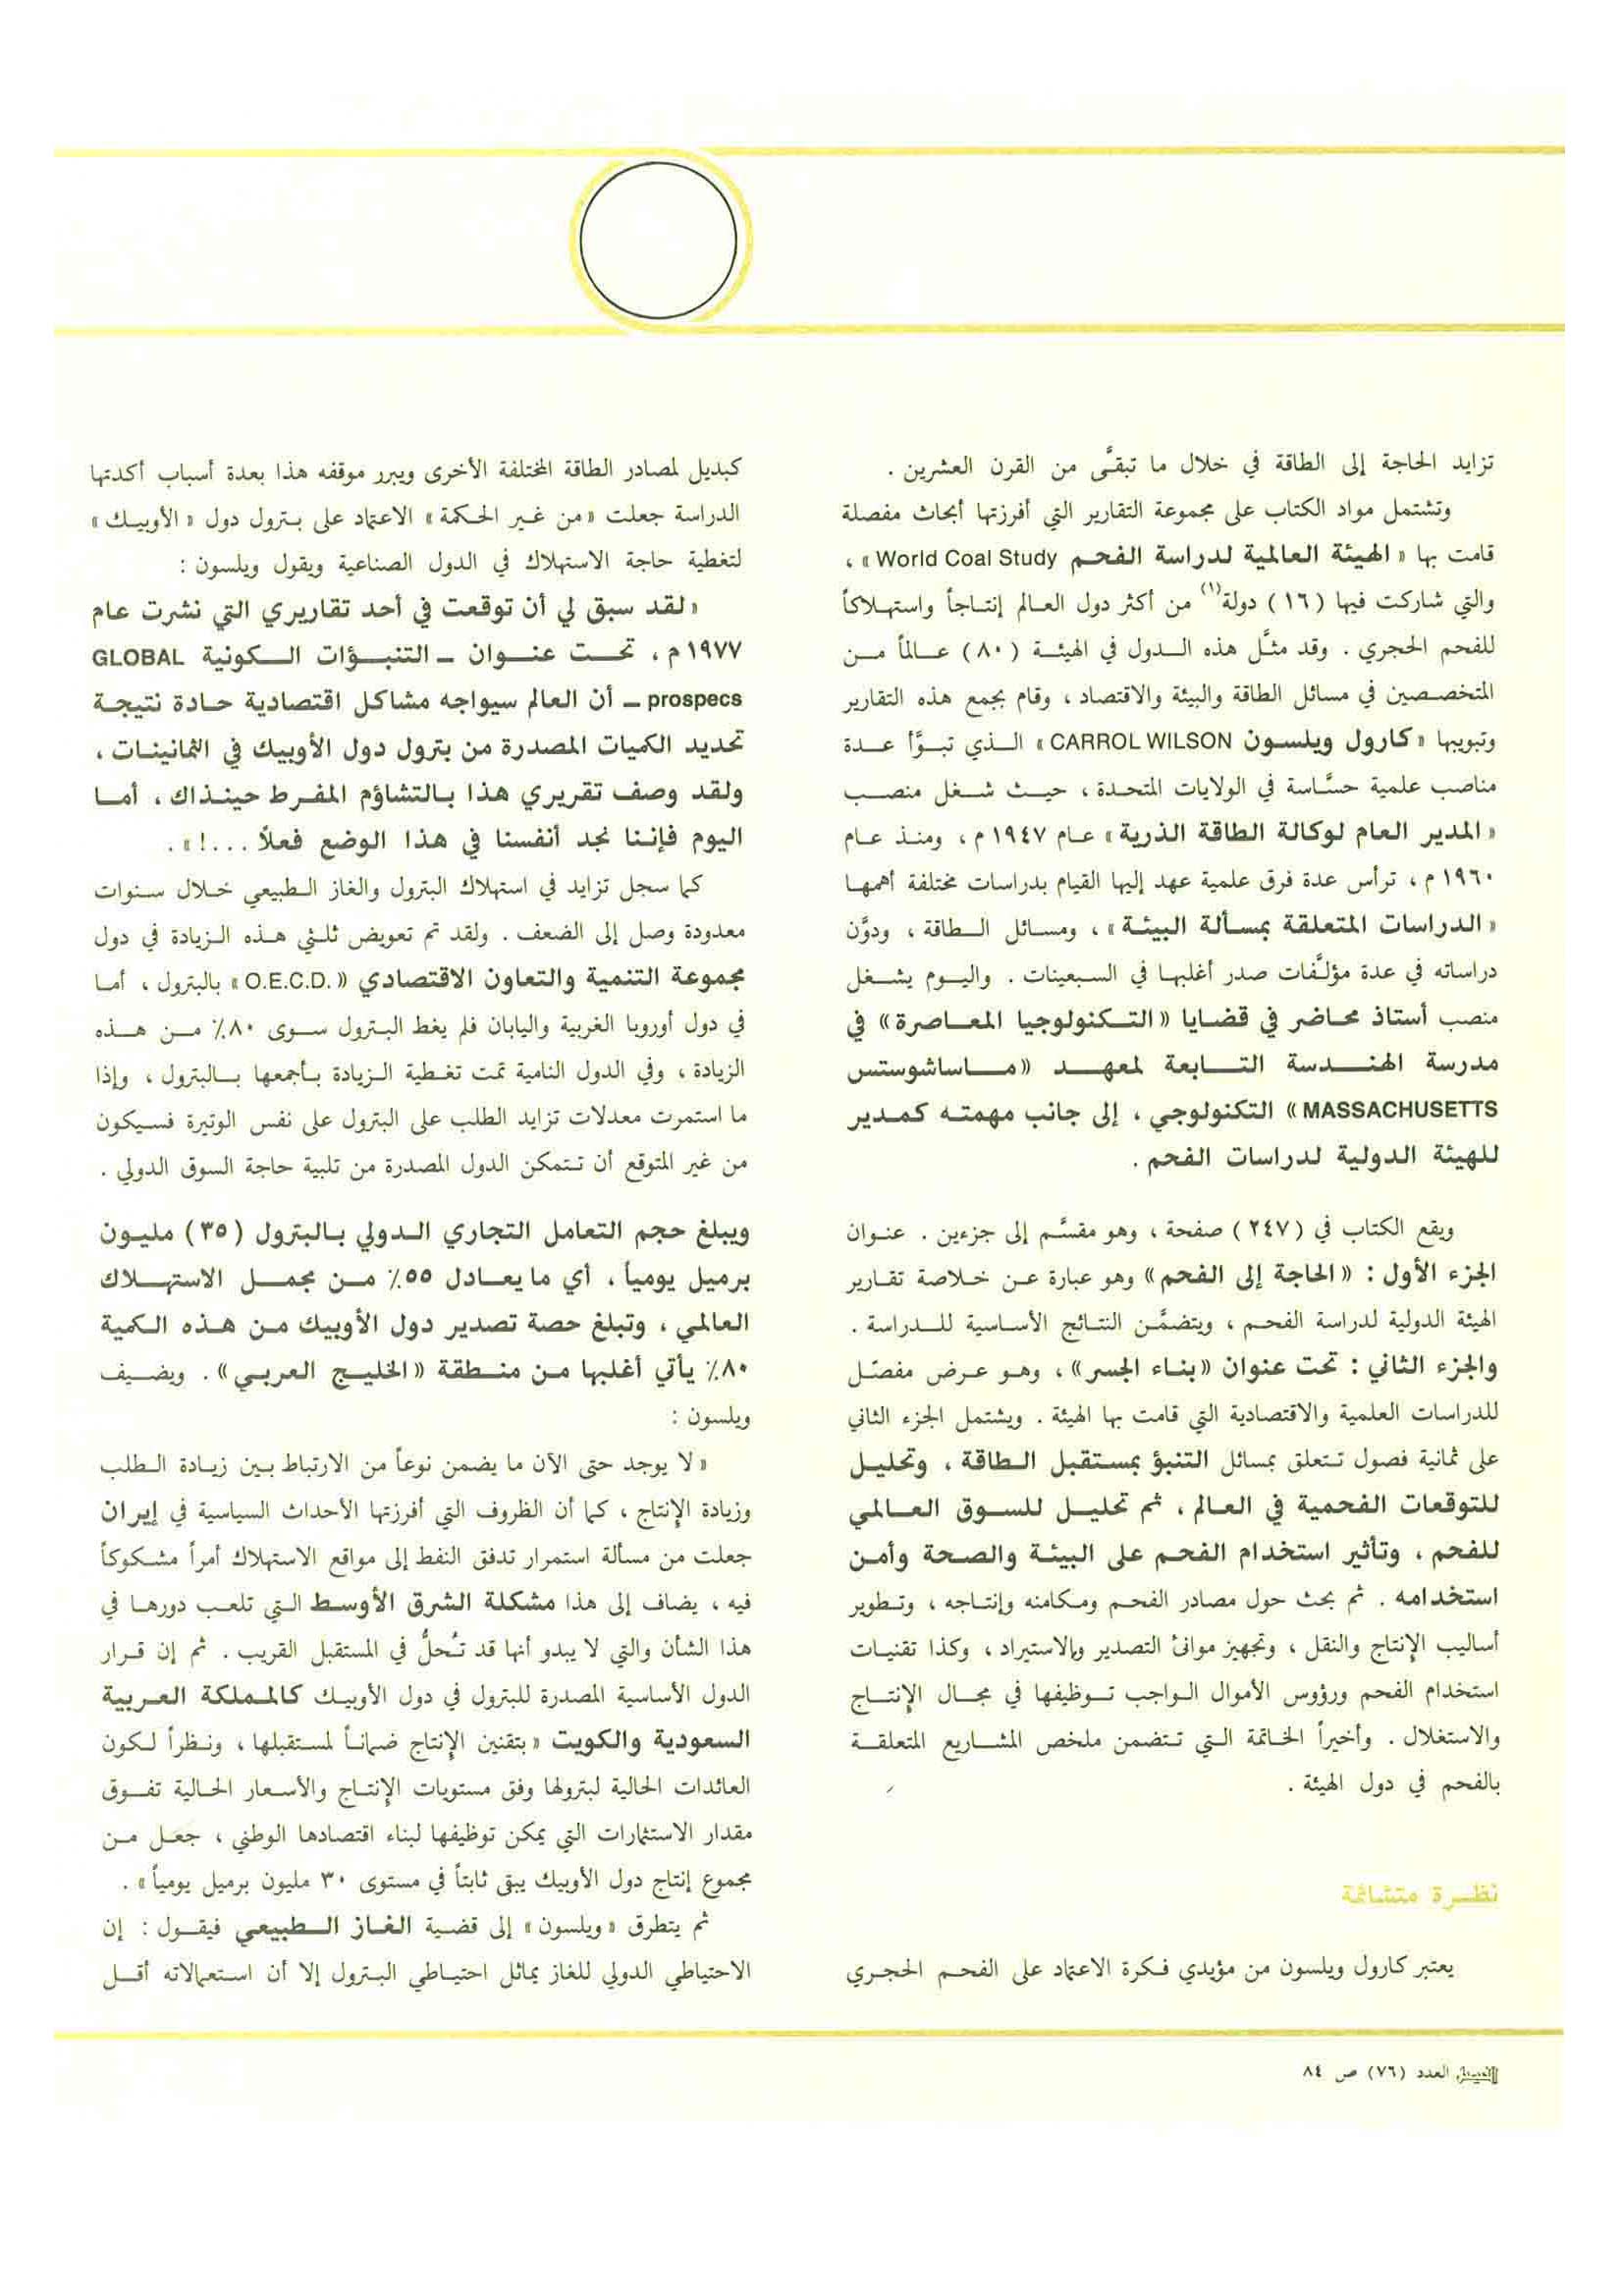 تزايد الحاجة إلى الطاقة في خلال ما تبقَّى من القرن العشرين .
وتشتمل مواد الكتاب على مجموعة التقارير التي أفرزتها أبحاث مفصلة
قامت بها « الهيئة العالمية لدراسة الفحم World Coal Study » ،
والتي شاركت فيها (١٦) دولة(١) من أكثر دول العالم إنتاجاً واستهلاكاً
للفحم الحجري . وقد مثَّل هذه الدول في الهيئة (٨٠) عالماً من
المتخصصين في مسائل الطاقة والبيئة والاقتصاد ، وقام بجمع هذه التقارير
وتبويبها « كارول ويلسون CARROL WILSON » الذي تبوَّأ عدة
مناصب علمية حسَّاسة في الولايات المتحدة ، حيث شغل منصب
« المدير العام لوكالة الطاقة الذرية » عام ١٩٤٧ م ، ومنذ عام
١٩٦٠ م ، ترأس عدة فرق علمية عهد إليها القيام بدراسات مختلفة أهمها
« الدراسات المتعلقة بمسألة البيئة » ، ومسائل الطاقة ، ودوَّن
دراساته في عدة مؤلَّفات صدر أغلبها في السبعينات . واليوم يشغل
منصب أستاذ محاضر في قضايا « التكنولوجيا المعاصرة » في
مدرسة الهندسة التابعة لمعهد « ماساشوستس
MASSACHUSETTS » التكنولوجي ، إلى جانب مهمته كمدير
للهيئة الدولية لدراسات الفحم .
ويقع الكتاب في (٢٤٧) صفحة ، وهو مقسَّم إلى جزءين . عنوان
الجزء الأول : « الحاجة إلى الفحم » وهو عبارة عن خلاصة تقارير
الهيئة الدولية لدراسة الفحم ، ويتضمَّن النتائج الأساسية للدراسة .
والجزء الثاني : تحت عنوان « بناء الجسر » ، وهو عرض مفصّل
للدراسات العلمية والاقتصادية التي قامت بها الهيئة . ويشتمل الجزء الثاني
على ثمانية فصول تتعلق بمسائل التنبؤ بمستقبل الطاقة ، وتحليل
للتوقعات الفحمية في العالم ، ثم تحليل للسوق العالمي
للفحم ، وتأثير استخدام الفحم على البيئة والصحة وأمن
استخدامه . ثم بحث حول مصادر الفحم ومكامنه وإنتاجه ، وتطوير
أساليب الإنتاج والنقل ، وتجهيز موانئ التصدير والاستيراد ، وكذا تقنيات
استخدام الفحم ورؤوس الأموال الواجب توظيفها في مجال الإنتاج
والاستغلال . وأخيراً الخاتمة التي تتضمن ملخص المشاريع المتعلقة
بالفحم في دول الهيئة .
نظرة متشائمة
يعتبر كارول ويلسون من مؤيدي فكرة الاعتماد على الفحم الحجري
كبديل لمصادر الطاقة المختلفة الأخرى ويبرر موقفه هذا بعدة أسباب أكدتها
الدراسة جعلت « من غير الحكمة » الاعتماد على بترول دول « الأوبيك »
لتغطية حاجة الاستهلاك في الدول الصناعية ويقول ويلسون :
« لقد سبق لي أن توقعت في أحد تقاريري التي نشرت عام
١٩٧٧ م ، تحت عنوان ــ التنبؤات الكونية GLOBAL
prospecs ــ أن العالم سيواجه مشاكل اقتصادية حادة نتيجة
تحديد الكميات المصدرة من بترول دول الأوبيك في الثمانينات ،
ولقد وصف تقريري هذا بالتشاؤم المفرط حينذاك ، أما
اليوم فإننا نجد أنفسنا في هذا الوضع فعلاً ...! » .
كما سجل تزايد في استهلاك البترول والغاز الطبيعي خلال سنوات
معدودة وصل إلى الضعف . ولقد تم تعويض ثلثي هذه الزيادة في دول
مجموعة التنمية والتعاون الاقتصادي « O.E.C.D. » بالبترول ، أما
في دول أوروبا الغربية واليابان فلم يغط البترول سوى ٨٠٪ من هذه
الزيادة ، وفي الدول النامية تمت تغطية الزيادة بأجمعها بالبترول ، وإذا
ما استمرت معدلات تزايد الطلب على البترول على نفس الوتيرة فسيكون
من غير المتوقع أن تتمكن الدول المصدرة من تلبية حاجة السوق الدولي .
ويبلغ حجم التعامل التجاري الدولي بالبترول (٣٥) مليون
برميل يومياً ، أي ما يعادل ٥٥٪ من مجمل الاستهلاك
العالمي ، وتبلغ حصة تصدير دول الأوبيك من هذه الكمية
٨٠٪ يأتي أغلبها من منطقة « الخليج العربي » . ويضيف
ويلسون :
« لا يوجد حتى الآن ما يضمن نوعاً من الارتباط بين زيادة الطلب
وزيادة الإنتاج ، كما أن الظروف التي أفرزتها الأحداث السياسية في إيران
جعلت من مسألة استمرار تدفق النفط إلى مواقع الاستهلاك أمراً مشكوكاً
فيه ، يضاف إلى هذا مشكلة الشرق الأوسط التي تلعب دورها في
هذا الشأن والتي لا يبدو أنها قد تُحلُّ في المستقبل القريب . ثم إن قرار
الدول الأساسية المصدرة للبترول في دول الأوبيك كالمملكة العربية
السعودية والكويت « بتقنين الإنتاج ضماناً لمستقبلها ، ونظراً لكون
العائدات الحالية لبترولها وفق مستويات الإنتاج والأسعار الحالية تفوق
مقدار الاستثمارات التي يمكن توظيفها لبناء اقتصادها الوطني ، جعل من
مجموع إنتاج دول الأوبيك يبقى ثابتاً في مستوى ٣٠ مليون برميل يومياً » .
ثم يتطرق « ويلسون » إلى قضية الغاز الطبيعي فيقول : إن
الاحتياطي الدولي للغاز يماثل احتياطي البترول إلا أن استعمالاته أقل
الفيصل العدد (٧٦) ص ٨٤